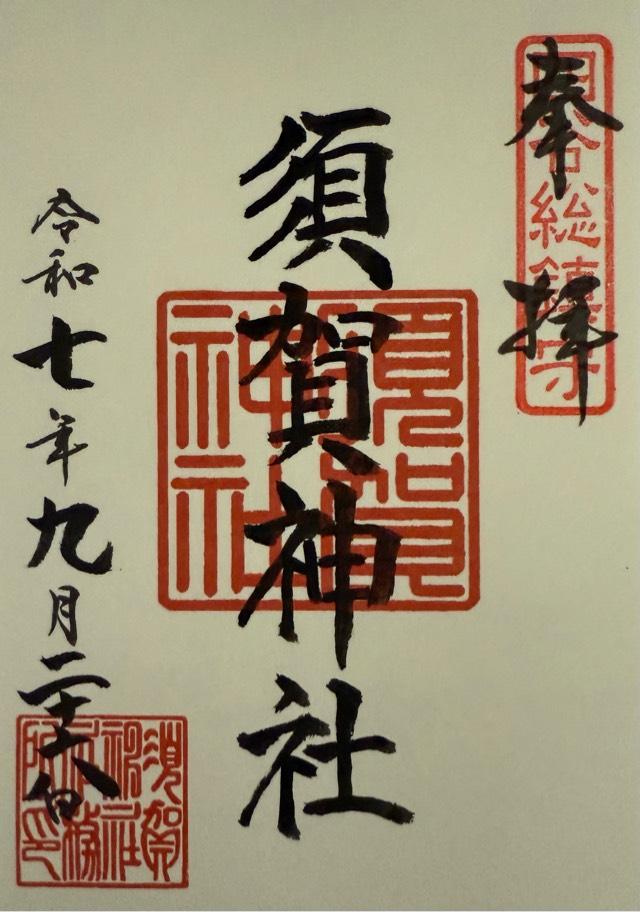 奉拝
四谷総鎮守
須賀神社
須賀神社
令和七年九月二十六日
須賀神社社務所印